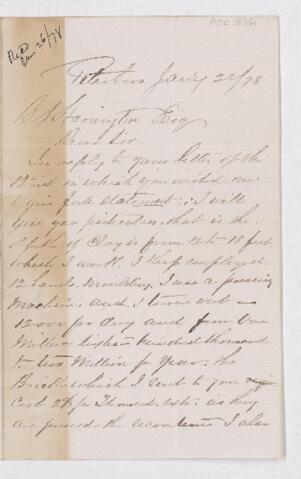 ACC 836
Recd
Jan 26/78
Peterboro Jany 22/78
B J Harrington Esq
Dear Sir
In reply to your letter of the
12 inst in which you wished me
to give full statement, I will
give you particulars, that is the
depth of Clay is from 12 to 18 feet
which I work. I keep employed
12 hands. moulding, I use a pressing
Machine and I turn out
12 000 per day and from One
Million Eight hundred thousand
to two Million per year. the
Bricks which I sent to you
cost 2$ per Thousand extra as they
are pressed the second time I also